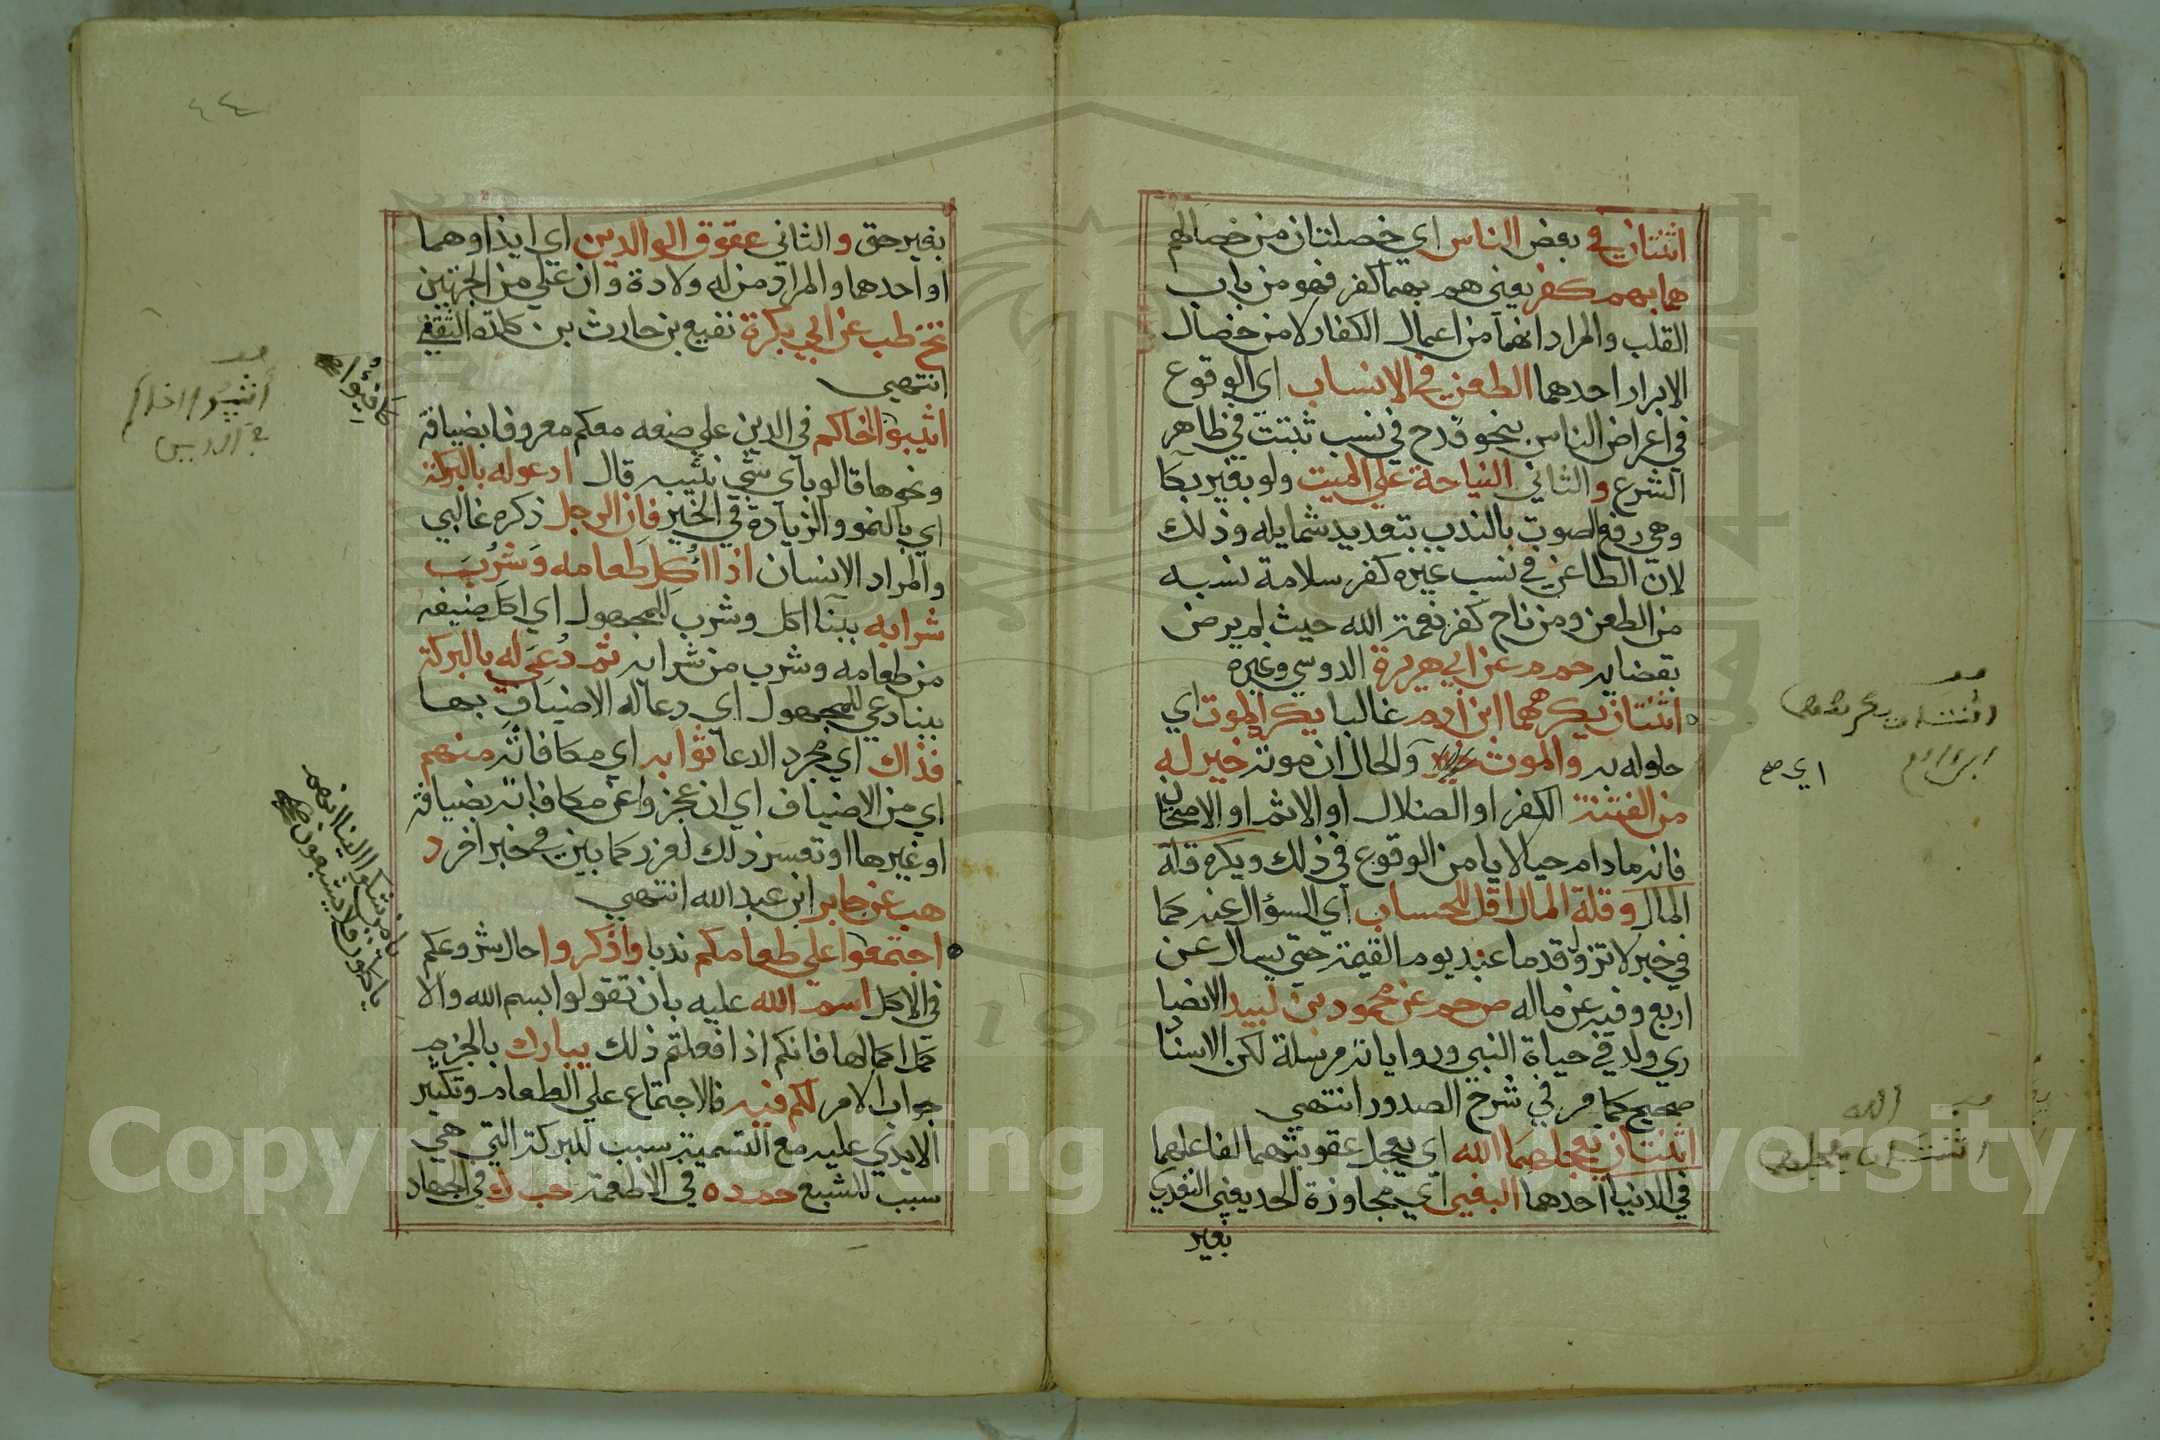 اثنتان في بعض الناس اي خصلتان من خصالهم
هما بهم كفر يعني هم بهما كفر فهو من باب
القلب والمراد انهما من اعمال الكفار لا من خصال
الابرار احدهما الطعن في الانساب اي الوقوع
في اعراض الناس بنحو قدح في نسب ثبتت في ظاهر
الشرع والثاني النياحة علي الميت ولو بغير بكا
وهي رفع الصوت بالندب بتعديد شمايله وذلك
لانّ الطاعن في نسب غيره كفر سلامة نسبه
من الطعن ومن ناح كفر نعمة الله حيث لم يرض
بقضايه حم م عن ابي هريرة الدوسي وغيره
اثنتان يكرههما ابن ادم غالبا يكره الموت اي
حلوله به والموت والحال ان موته خير له
من الفتنة الكفر او الضلال او الاثم او الامتحان
فانه ما دام حيا لا يامن الوقوع في ذلك ويكره قلة
المال وقلة المال اقل للحساب اي السؤال عنه كما
في خبر لا تزول قدما عبد يوم القيمة حتي يسال عن
اربع وفيه عن ماله ص حم عن محمود بن لبيد الانصا
ري ولد في حياة النبي ورواياته مرسلة لكن الاسناد
صحيح كما مر في شرح الصدور انتهي
اثنتان يعجلهما الله اي يعجل عقوبتهما لفاعلهما
في الدنيا احدهما البغي اي مجاوزة الحد يعني التعدي
بغير
اي صح
بغير حق والثاني عقوق الوالدين اي ايذاوهما
او احدهما والمراد من له ولادة وان علي من الجهتين
تخ طب عن ابي بكرة نفيع بن حارث بن كلدة الثقفي
انتهي
اثيبوا اخاكم في الدين علي صنعه معكم معروفا بضيافة
ونحوها قالو باي شي نثيبه قال ادعو له بالبركة
اي بالنمو والزيادة في الخير فان الرجل ذكره غالبي
والمراد الانسان اذا اُكِل طعامه وشُرِبَ
شرابه ببنا اكل وشرب للمجهول اي اكل ضيفه
من طعامه وشرب من شرابه ثم دُعِيَ له بالبركة
ببنا دعي للمجهول اي دعا له الاضياف بها
فذاك اي مجرد الدعا ثوابه اي مكافاته منهم
اي من الاضياف اي ان عجزوا عن مكافاته بضيافة
او غيرها او تعسر ذلك لعزر كما بين في خبر اخر د
هب عن جابر ابن عبد الله انتهي
اجتمعوا علي طعامكم ندبا واذكروا حال شروعكم
في الاكل اسم الله عليه بان تقولوا بسم الله والا
كمل اكمالها فانكم اذا فعلتم ذلك يبارك بالجزم
جواب الامر لكم فيه فالاجتماع علي الطعام وتكثير
الايدي عليه مع التسمية سبب للبركة التي هي
سبب للشبع حم د ه في الاطعمة حب ك في الجهاد